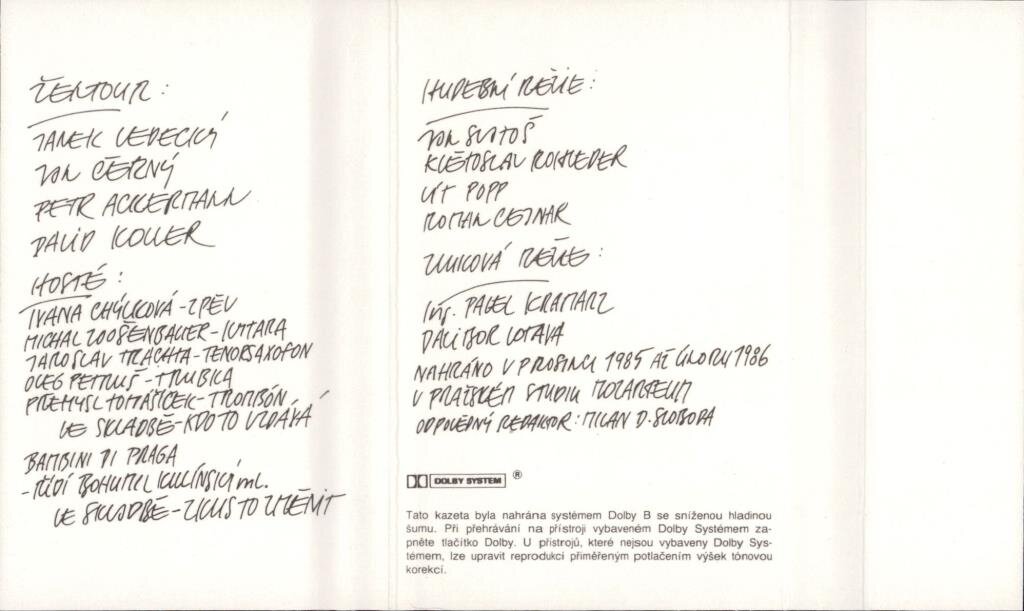 ŽENTOUR:
JANEK LEDECKÝ
JAN ČERNÝ
PETR ACKERMANN
DAVID KOLLER
HOSTÉ:
IVANA CHÝLKOVÁ-ZPĚV
MICHAL -KYTARA
JAROSLAV TRACHTA-TENORSAXOFON
OLEG PETRUŠ-TRUBKA
PŘEMYSL TOMÁŠÍČEK-TROMBÓN,
VE SKLADBĚ-KDO TO VZDÁVÁ
BAMBINI DI PRAGA
-ŘÍDÍ BOHUMIL KULÍNSKÝ ml.
VE SKLADBĚ-ZKUS TO ZMĚNIT
HUDEBNÍ REŽIE:
JAN SVATOŠ
KVĚTOSLAV ROHLEDER
VÍT POPP
ROMAN CEJNAR
ZVUKOVÁ REŽIE:
Ing. PAVEL KRAMARZ
DALIBOR LOTAVA
NAHRÁNO V PROSINCI 1985 AŽ ÚNORU 1986
V PRAŽSKÉM STUDIU MOZARTEUM
ODPOVĚDNÝ REDAKTOR: MILAN D. SLOBODA
DOLBY SYSTEM ®
Tato kazeta byla nahrána systémem Dolby B se sníženou hladinou
šumu. Při přehrávání na přístroji vybaveném Dolby Systémem za-
pněte tlačítko Dolby. U přístrojů, které nejsou vybaveny Dolby Sys-
témem, lze upravit reprodukci přiměřeným potlačením výšek tónovou
korekcí.